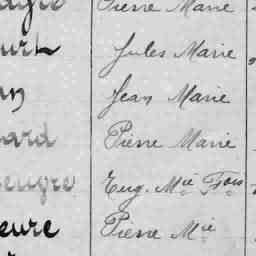 Pierre Marie
Jules Marie
Jean Marie
ard Pierre Marie
Eug. Mie Fois
eure Pierre Mie